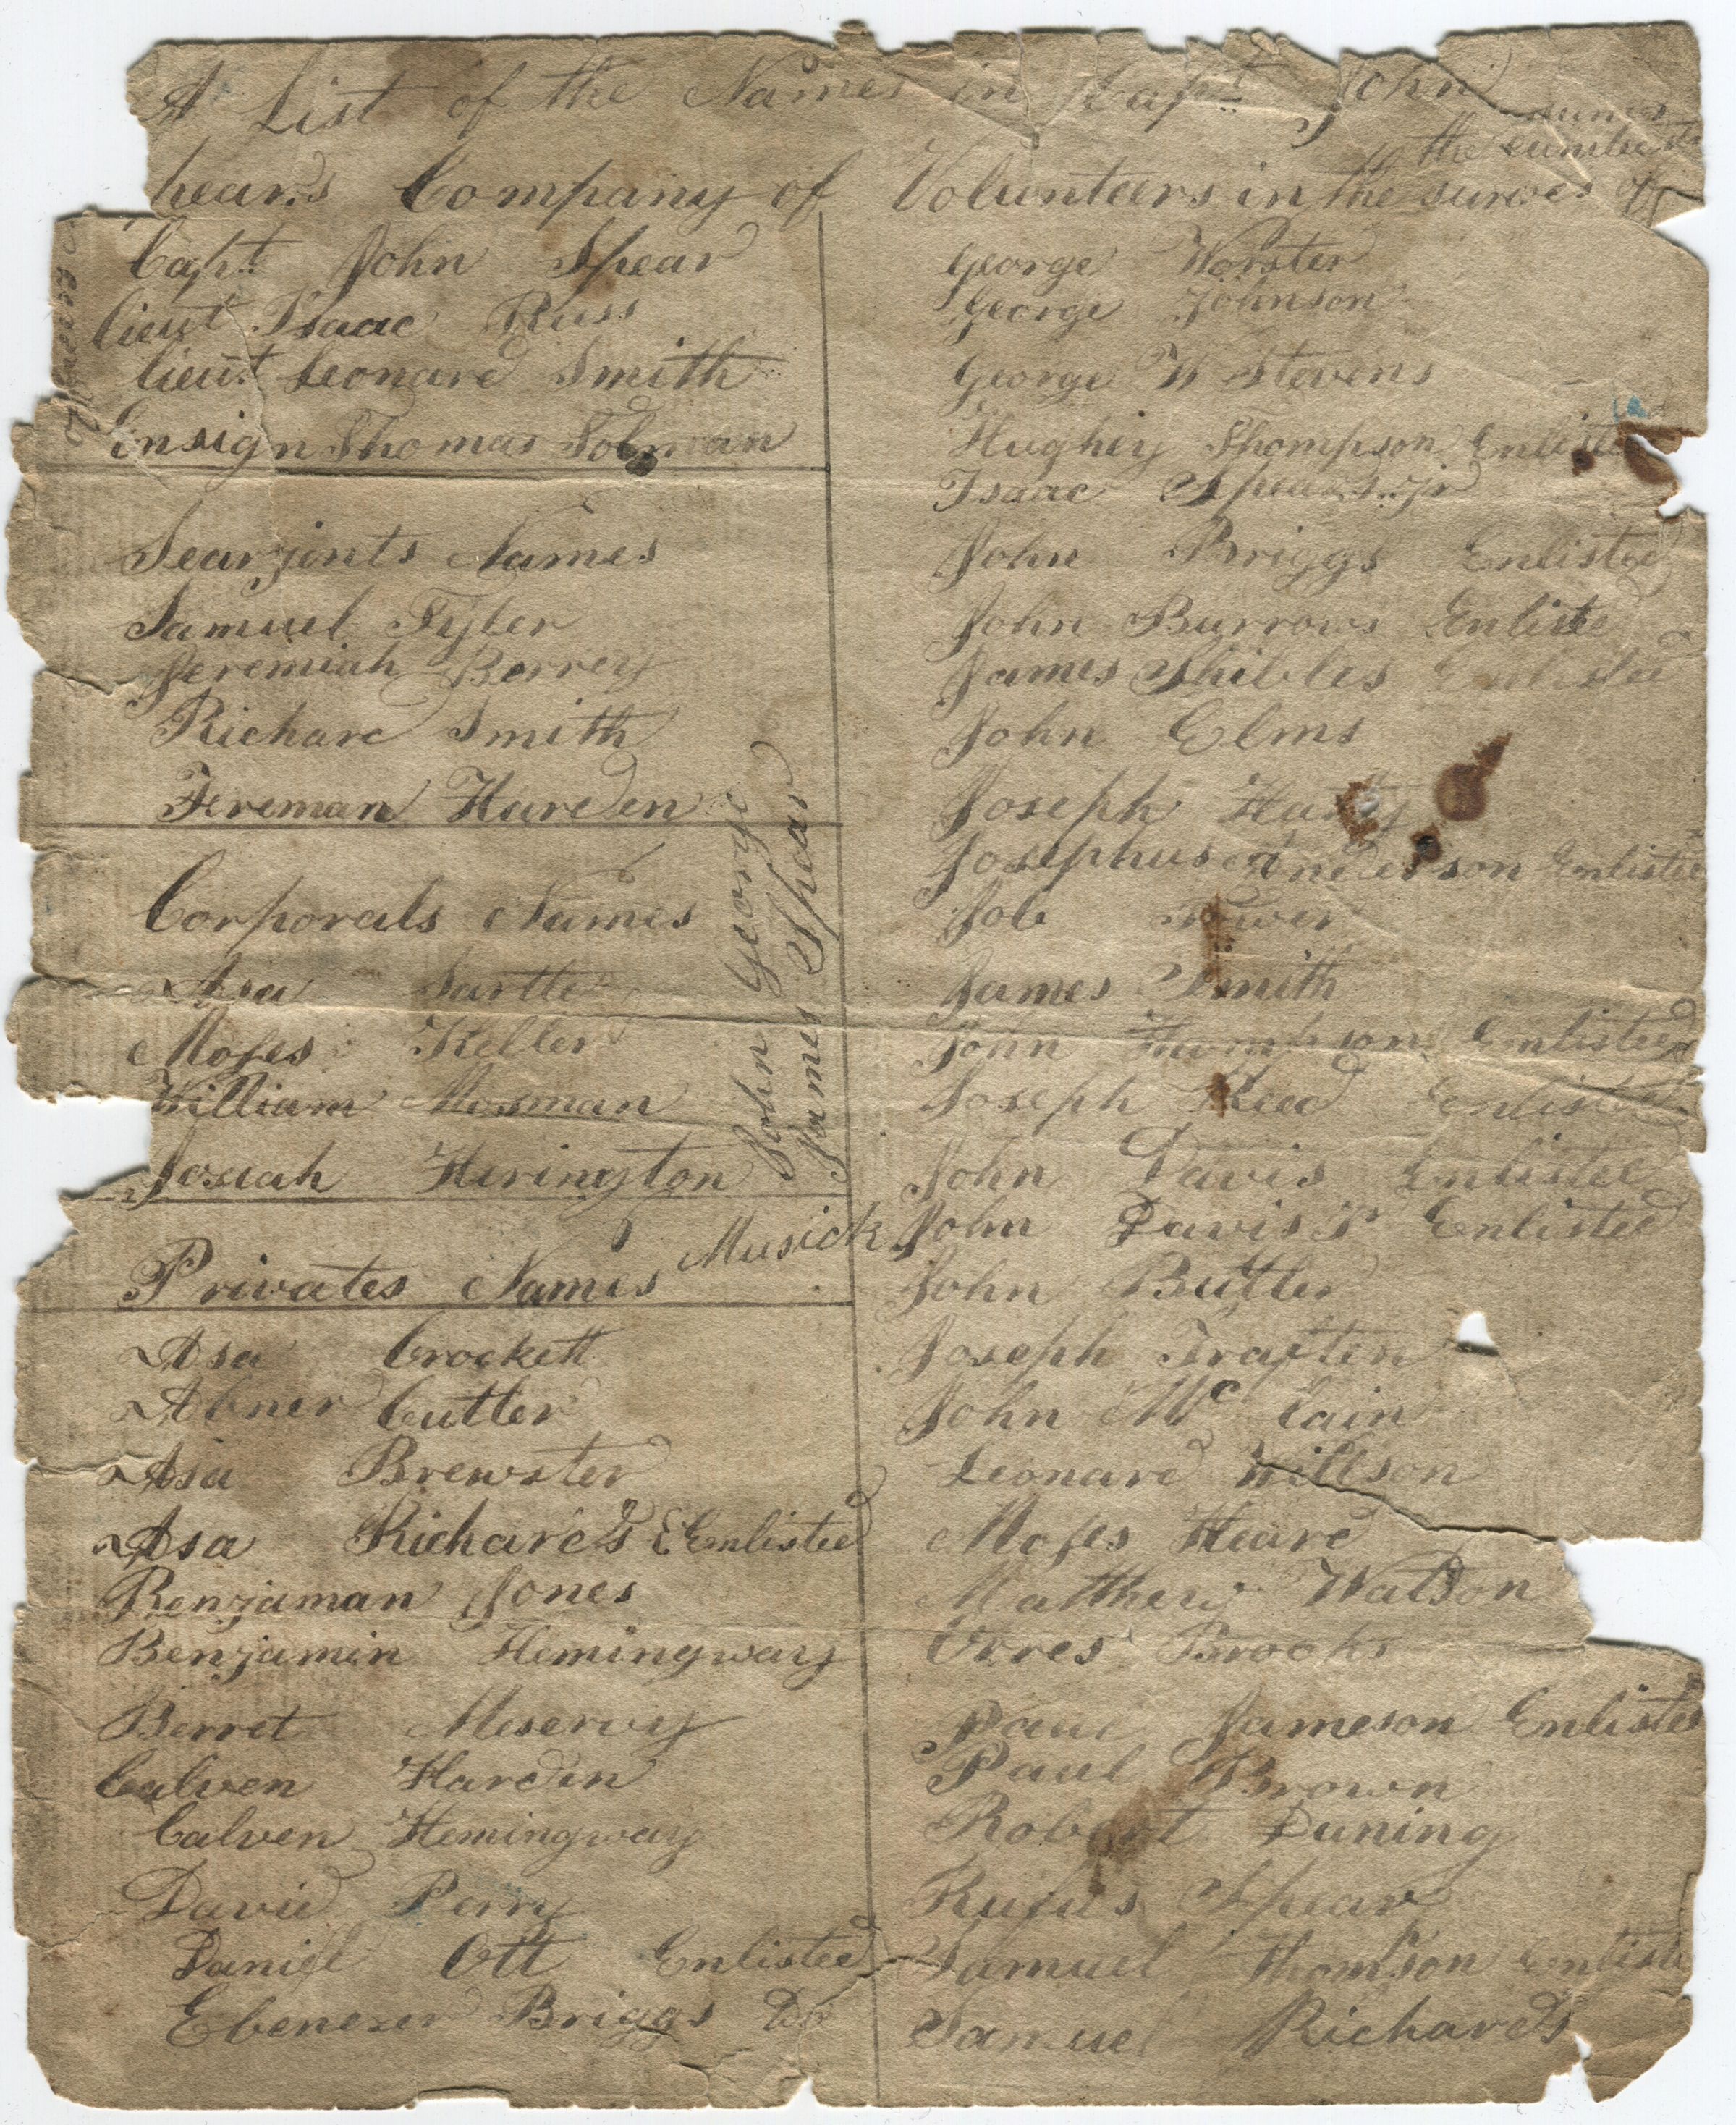 A List of the Names in Capt John
hears Company of Volunteers in the surves of
the eunited
Capt. John Spear
lieut Isaac Russ
lieut Leonard Smith
Ensign Thomas Tolman
Searjents Names
Samuel Tyler
Jeremiah Berrey
Richard Smith
Freman Harden
Corporals Names
Asa Sartle
Moses Keller
William Mosman
Josiah Herington
John George
James Spear
Musick
Privates Names
Asa Crockett
Abner Cutler
Asa Brewster
Asa Richards Enlisted
Benjaman Jones
Benjamin Hemingway
Berret Meservey
Calven Harden
Calven Hemingway
David Perry
Daniel Ott Enlisted
Ebenezer Briggs Do
George Worster
George Johnson
George W Stevens
Hughey Thompson Enlisted
Isaac Spears jr
John Briggs Enlisted
John Burrows Enliste
James Shibles Enlisted
John Elms
Joseph Hardy
Josephus Anderson Enlisted
Job Tower
James Smith
John Thompson Enlisted
Joseph Reed Enlisted
John Davis Enlisted
John Davis Jr Enlisted
John Butler
Joseph Traften
John Mc Cain
Leonard Willson
Moses Heard
Matthew Watson
Orres Brooks
Paul Jameson Enlisted
Paul Brown
Robert Duning
Rufus Spear
Samuel Thomson Enliste
Samuel Richards